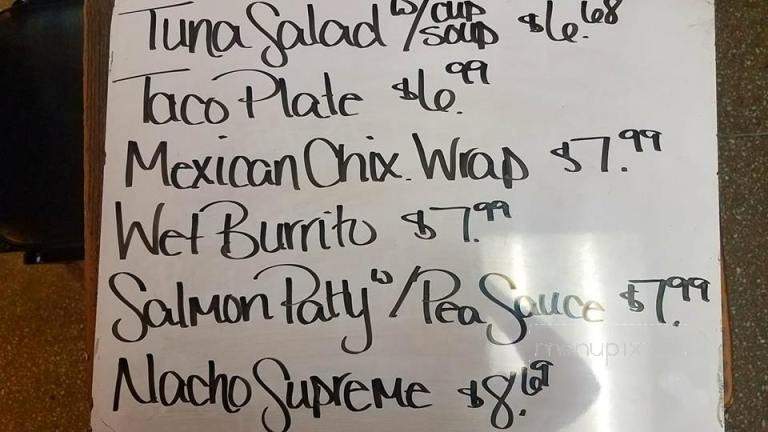 Tuna Salad w/ cup soup $6.68
Taco Plate $6.99
Mexican Chix. Wrap $7.99
Wet Burrito $7.99
Salmon Patty w/ Pea Sauce $7.99
menupix
Nacho Supreme $8.69